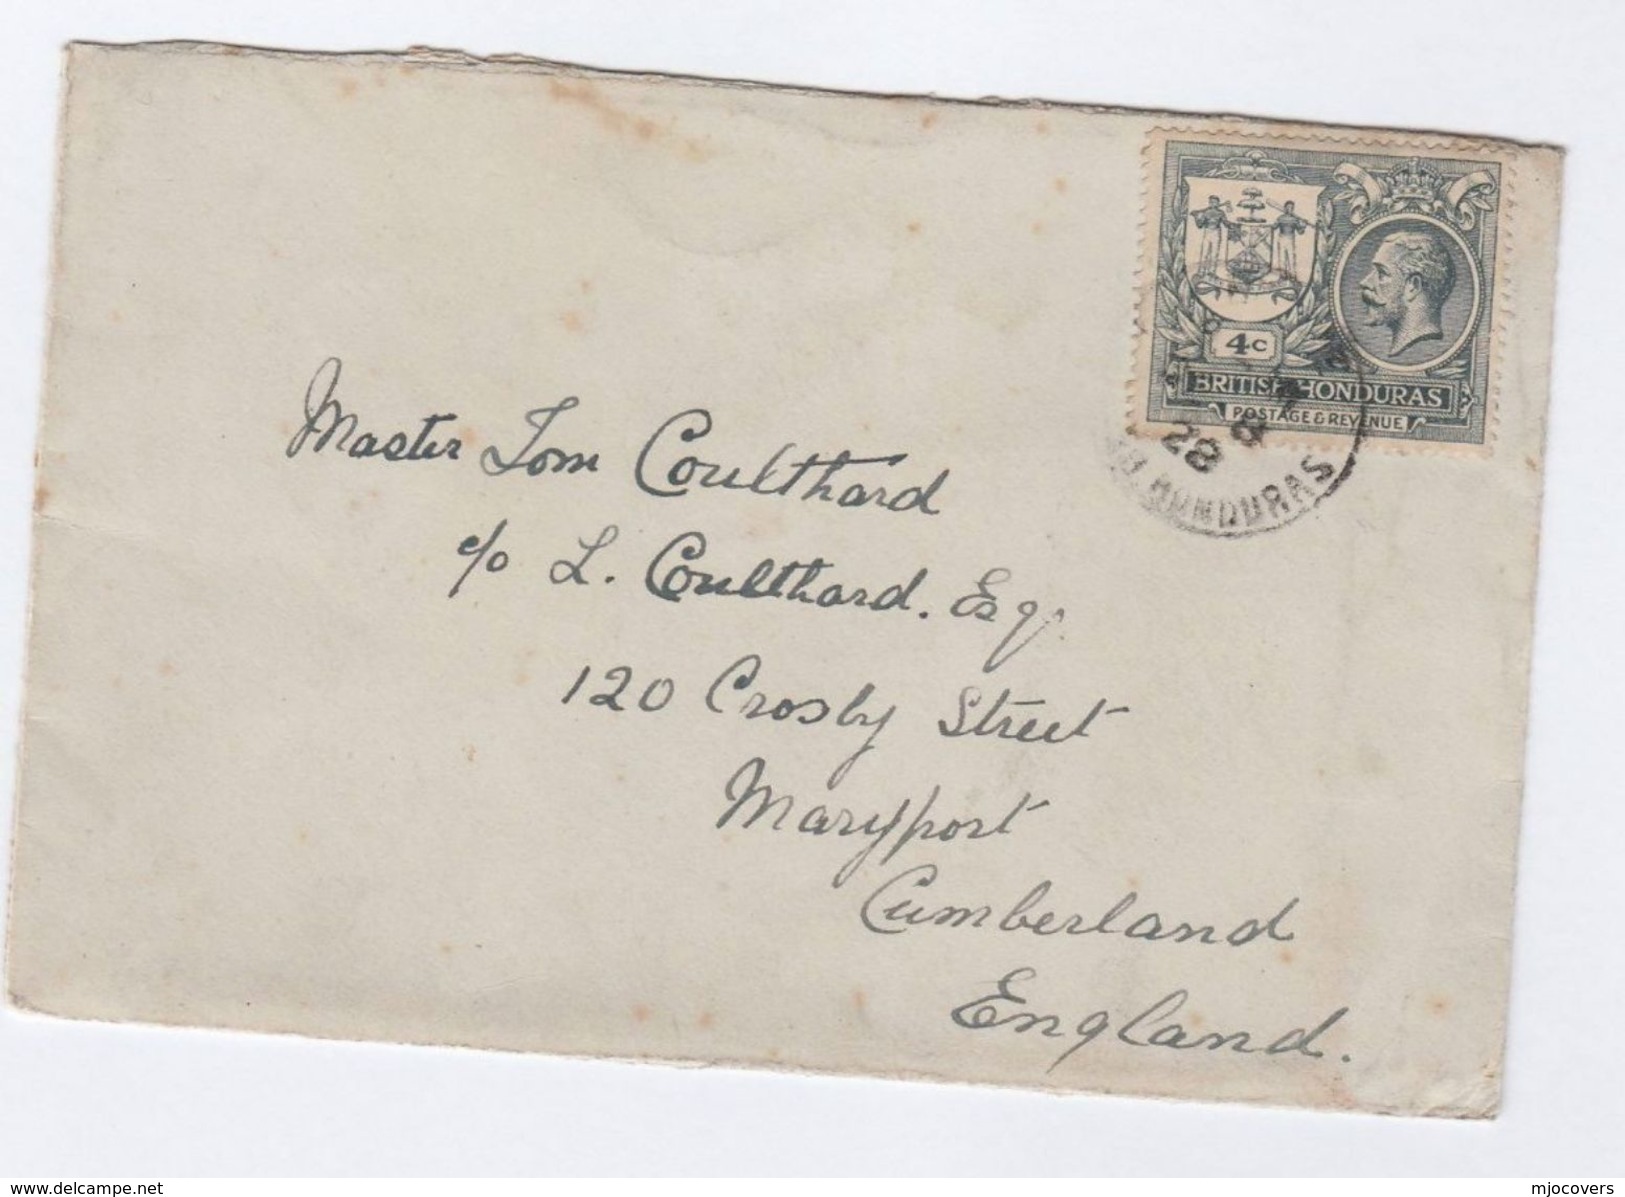 4c
BRITISH HONDURAS
POSTAGE & REVENUE
28
HONDURAS
Master Tom Coulthard
c/o L. Coulthard. Esq.
120 Crosby Street
Maryport
Cumberland
England.
www.delcampe.net
mjocovers